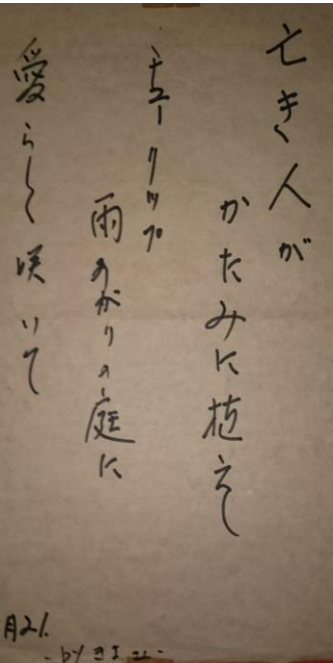 亡き人が
かたみに植えし
チューリップ
雨あがりの庭に
愛らしく咲いて
月21.